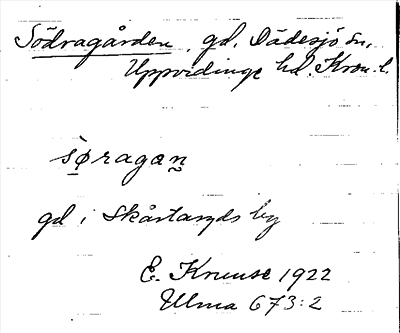 Södragården, gd, Dädesjö sn,
Uppvidinge hd. Kron. l.
sø̀ragan̰
gd i Skårtaryds by
E. Kruuse 1922
Ulma 673:2